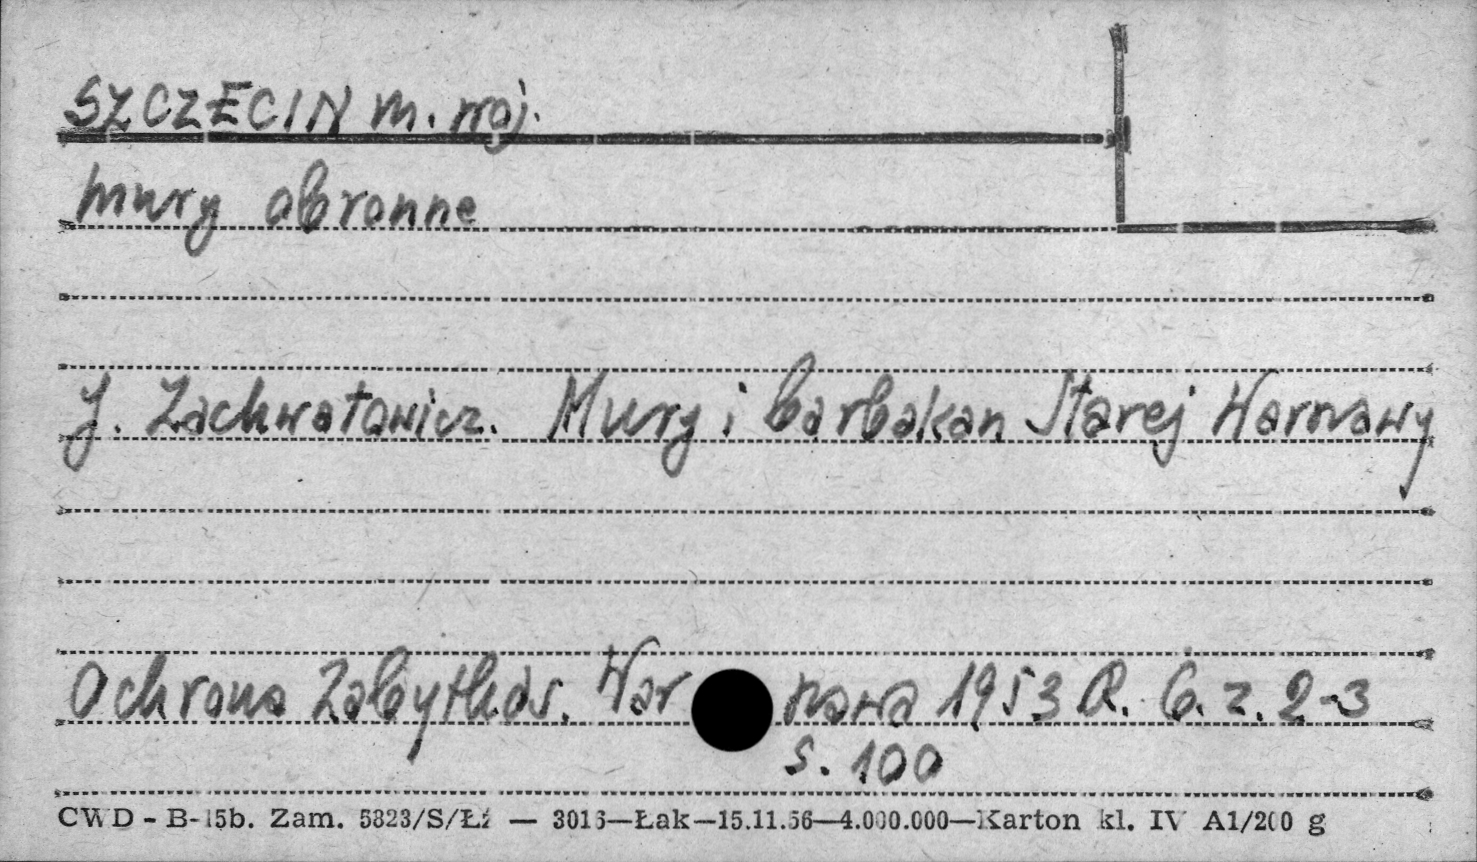 SZCZECIN m. woj.
mury obronne
J. Zachwatowicz. Mury i barbakan Starej Warszawy
Ochrona Zabytków. War szawa 1953 R. 6. z. 2-3
s. 100
CWD - B-15b. Zam. 5823/S/Łź — 3016—Łak—15.11.56—4.000.000—Karton kl. IV A1/200 g